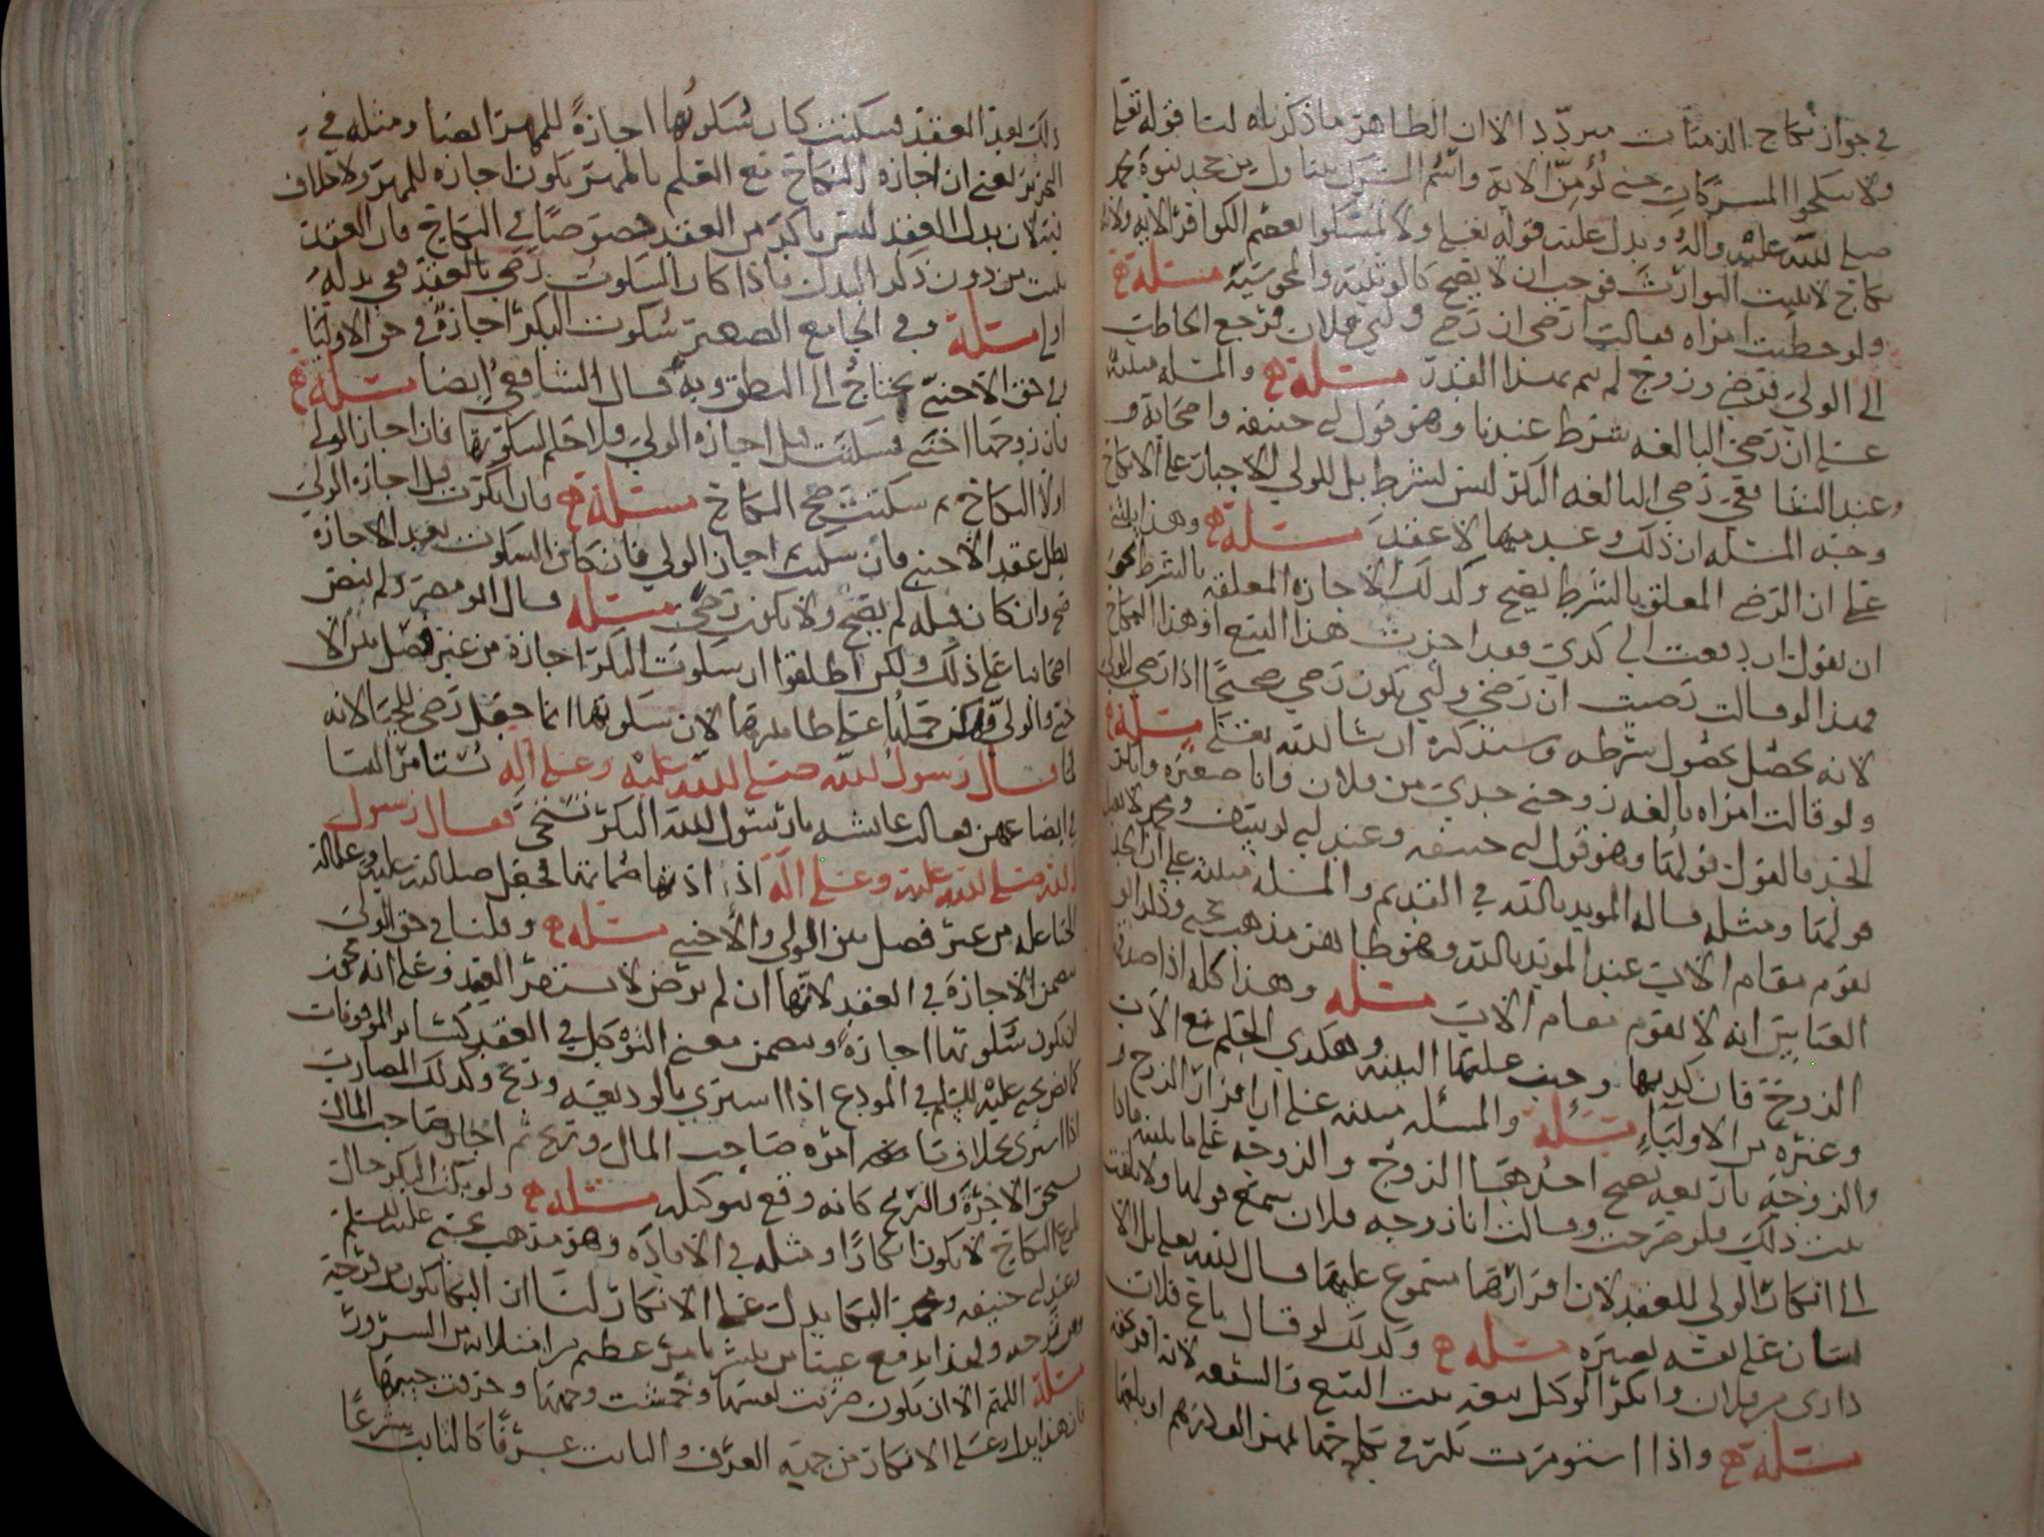 في جواز نكاح الذميات مبردد الا ان الظاهر ما ذكرناه لنا قوله تعالى
ولا تنكحوا المشركات حتى يؤمن الاية واسم الشرك يتناول من جحد نبوة محمد
صلى الله عليه وآله ويدل عليه قوله تعالى ولا تمسكوا بعصم الكوافر الاية ولانه
نكاح لا يثبت التوارث فوجب ان لا يصح كالوثنية والمجوسية مسئلة
ولو خطبت امراه فقالت ارضى ان رضي وليي فلان فرجع الخاطب
الى الولي فرضي وزوج لم يتم بهذا القدر مسئلة والمسئلة مبنية
على ان رضى البالغه شرط عندنا وهو قول ابي حنيفه واصحابه و
عند الشافعي رضى البالغه البكر ليس بشرط بل للولي الاجبار على الانكاح
وجه المسئله ان ذلك وعد منها لا عقد مسئلة وهذا يبتني
على ان الرضى المعلق بالشرط يصح وكذلك الاجازه المعلقه بالشرط نحو
ان يقول ان دفعت الي كذي فقد اجزت هذا البيع او هذا النكاح
فهذا لو قالت رضيت ان رضي وليي يكون رضى صحيحا اذا رضي الولي
لانه يحصل بحصول شرطه وسنذكره ان شا الله تعالى مسئلة
ولو قالت امراه بالغه زوجني جدي من فلان وانا صغيره وانكر
الجد فالقول قولها وهو قول ابي حنيفه وعند ابي يوسف ومحمد
هو لهما ومثله قاله المويد بالله في القديم والمسئله مبنية على ان الجد
يقوم مقام الاب عند المويد بالله وهو ظاهر مذهب يحيى
انه لا يقوم مقام الاب مسئله وهذا كله اذا
الزوج فان كذبها وجب عليها البينه وهكذي الحكم مع الاب
وغيره من الاوليا مسئله والمسئله مبنيه على ان اقرار الزوج و
والزوجة احدهما الزوج والزوجه على ما
ذلك فلو خرجت وقالت انا زوجه فلان سمع قولها ولا يلتفت
الى انكار الولي للعقد لان اقرارها مسموع عليها قال الله تعالى بل الا
نسان على نفسه بصيره مسئله وكذلك لو قال باع فلان
داري من فلان وانكر الوكيل بيعه ثبت البيع و الشفعه لانه
مسئلة واذا استومرت بكر في نكاحها
ذلك بعد العقد فسكتت كان سكوتها اجازة للمهر ايضا ومثله في
التحرير يعني ان اجازه النكاح مع العلم بالمهر يكون اجازه للمهر ولا خلاف
فيه لان بدل العقد ليس باكد من العقد خصوصا في النكاح فان العقد
يثبت من دون ذكر البدل فاذا كان السكوت رضى بالعقد ففي بدله
اولى مسئلة وفي الجامع الصغير سكوت البكر اجازة في حق الاوليا
وفي حق الاجنبي يحتاج الى النطق وبه قال الشافعي ايضا مسئلة
فان زوجها اجنبي فسكتت قبل اجازه الولي فلا حكم لسكوتها فان اجاز الولي
اولا النكاح ثم سكتت صح النكاح مسئلة فان انكرت قبل اجازة الولي
بطل عقد الاجنبي فان سكتت ثم اجاز الولي فان كان السكوت بعد الاجازة
صح وان كان قبله لم يصح ولا يكون رضى مسئله قال ابو مضر ولم ينص
اصحابنا على ذلك ولكن اطلقوا ان سكوت البكر اجازة من غير فصل بين الا
جنبي والولي حملنا على ظاهرها لان سكوتها انما جعل رضى للحيا لانه
لما قال رسول الله صلى الله عليه وعلى آله تستامر النسا
في ابضاعهن فقالت عايشه يا رسول الله البكر تستحي فقال رسول
الله صلى الله عليه وعلى آله اذنها صماتها فجعل صلى الله عليه وعلى اله
الحيا علة من غير فصل بين الولي والاجنبي مسئلة وقلنا في حق الولي
يضمن الاجازة في العقد لانها ان لم ترض لا يستقر العقد وعلى انه يجوز
ان يكون سكوتها اجازة ويضمن معنى التوكيل في العقد كسائر الموقوفات
كما نص يحيى عليه السلم في المودع اذا اشترى بالوديعه وربح وكذلك المضارب
اذا اشترى بخلاف ما امره صاحب المال وربح ثم اجاز صاحب المال
يستحق الاجرة والربح كانه وقع بتوكيله مسئله ولو بكت البكر حال
بلوغ النكاح لا يكون انكارا ومثله في الافادة وهو مذهب يحيى عليه السلم
وعند ابي حنيفه ومحمد البكا يدل على الانكار لنا ان البكا يكون من فرحة
ومن ترحه ولهذا يدمع عينا من يبشر بامر عظيم من امتلائه من السرور
مسئلة اللهم الا ان يكون ضربت نفسها وخمشت وجهها وخرقت جيبها
فان هذا يدل على الانكار من جهة العرف والثابت عرفا كالثابت شرعا